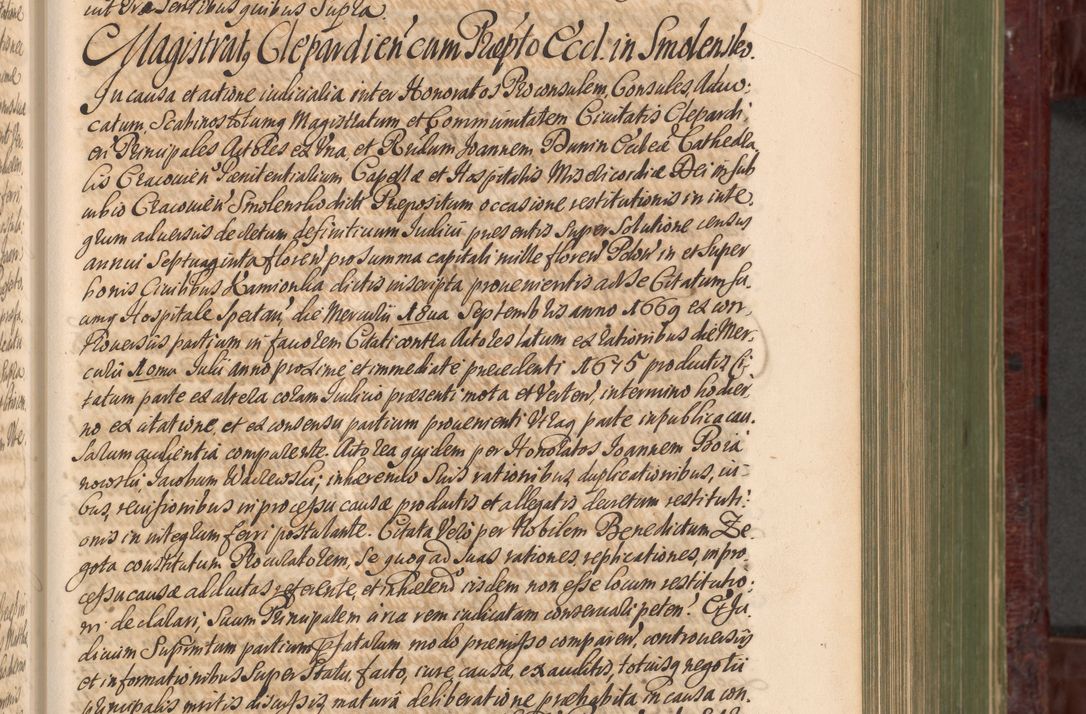 int Praesentibus quibus Supra.
Magistratq Clepardien' cum Praepto Eccl. in Smolensko.
In causa et actione iudicialia inter Honoratos Proconsulem, Consules Aduo-
catum, Scabinos totumq Magistratum et Communitatem Ciuitatis Clepardi,
en' Principales Actores ex Vna, et Rndum Joannem Dunin Eccleae Cathedra
lis Cracouien' Paenitentiarium Capellae et Hospitalis Misericordiae Dei in sub
urbio Cracouien' Smolensko dicti Praepositum occasione restitutionis in inte,
grum aduersus decretum definitiuum Iudicii praesentis super Solutione census
annui Septuaginta floren' pro summa capitali mille floren' Polon' in et super
bonis Ciuilibus Kamionka dictis inscripta prouenientis ad se Citatum su,
umq Hospitale Spectan' die Mercurii 18ua Septembris anno 1669 ex con,
trouersiis partium in fauorem Citati contra Actores latum ex rationibus die Mer,
curii 10ma Julii anno proxime et immediate praecedenti 1675 productis Ci,
tatum parte ex altera coram Iudicio praesenti mota et Verten', in termino hodier
no ex citatione, et ex consensu partium prouenienti Vtraq parte in publica cau,
sarum audientia comparente. Actorea quidem per Honoratos Joannem
nowski, Jacobum Waclewski, inhaerendo Suis rationibus, duplicationibus, iu-
bus, reuisionibus in processu causae productis et allegatis Decretum restituti-
onis in integrum ferri postulante. Citata Vero per Nobilem Benedictum Ze-
gota constitutum Procuratorem, Se quoq ad suas rationes, replicationes, in pro,
cessu causae adductas referente, et inhaerend' iisdem non esse locum restitutio,
ni declarari, Suum Principalem circa rem iudicatam conseruari peten'. Ex Iu
dicium Suprmtum partium Ptatarum modo praemisso comparen', controuersiis
et informationibus super Statu, facto, iure, causae, exauditis, totiusq negotii
principalis meritis discussis, matura deliberatione praehabita in causa con.